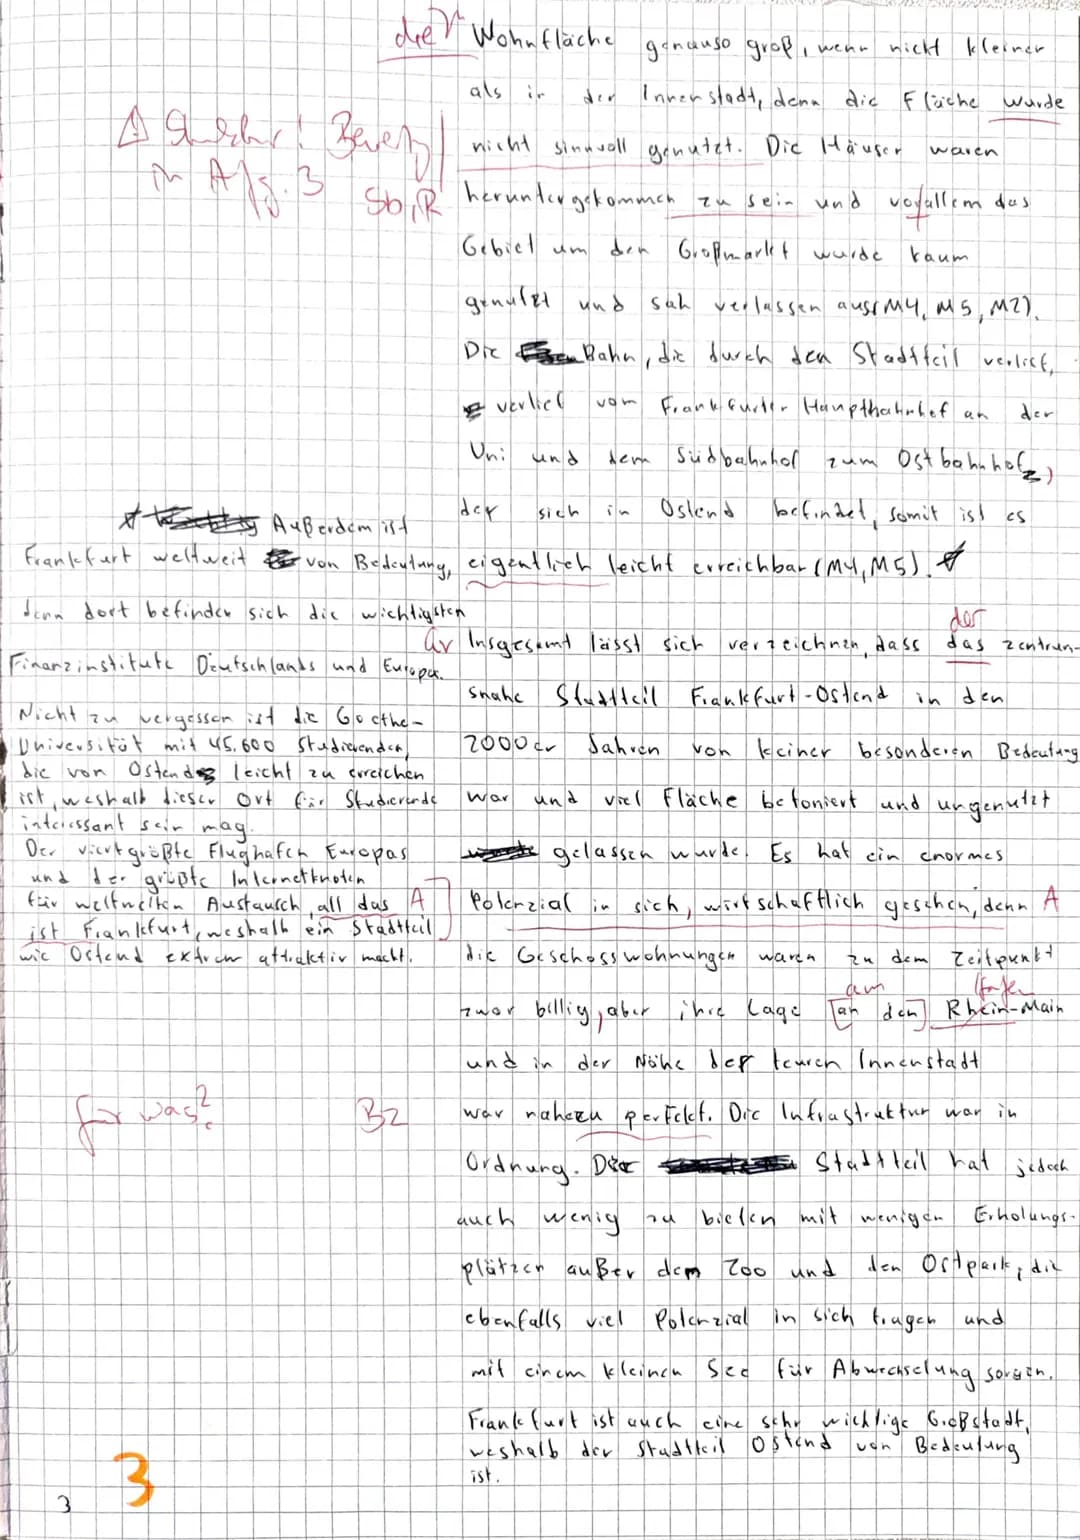 die Wohnfläche genauso groß, wenn nicht kleiner
als in der Innenstadt, denn die Fläche wurde
nicht sinnvoll genutzt. Die Häuser waren
in Afg. 3
Sb, R
heruntergekommen zu sein und vorallem das
Gebiet um den Großmarkt wurde kaum
genutzt und sah verlassen aus (M4, M5, M2).
Die Bahn, die durch den Stadtteil verlief,
verlief vom Frankfurter Hauptbahnhof an der
Uni und dem Südbahnhof zum Ostbahnhof,
der sich in Ostend befindet, somit ist es
eigentlich leicht erreichbar (M4, M5).
Außerdem ist
Frankfurt weltweit von Bedeutung,
denn dort befinden sich die wichtigsten
Finanzinstitute Deutschlands und Europas.
Nicht zu vergessen ist die Goethe-
Universität mit 45.600 Studierenden,
die von Ostend leicht zu erreichen
ist, weshalb dieser Ort für Studierende
interessant sein mag.
Der viertgrößte Flughafen Europas
und der größte Internetknoten
für weltweiten Austausch, all das A
ist Frankfurt, weshalb ein Stadtteil
wie Ostend extrem attraktiv macht.
der
Gr Insgesamt lässt sich verzeichnen, dass das zentrun-
snahe Stadtteil Frankfurt-Ostend in den
2000er Jahren von keiner besonderen Bedeutung
war und viel Fläche betoniert und ungenutzt
gelassen wurde. Es hat ein enormes
Potenzial in sich, wirtschaftlich gesehen, denn A
die Geschosswohnungen waren zu dem Zeitpunkt
am
zwar billig, aber ihre Lage an den Rhein-Main
und in der Nähe der teuren Innenstadt
für was? Bz
war nahezu perfekt. Die Infrastruktur war in
Ordnung. Der Stadtteil hat jedoch
auch wenig zu bieten mit wenigen Erholungs-
plätzen außer dem Zoo und den Ostpark, die
ebenfalls viel Potenzial in sich tragen und
mit einem kleinen See für Abwechselung sorgen.
Frankfurt ist auch eine sehr wichtige Großstadt,
weshalb der Stadtteil Ostend von Bedeutung
ist.
3
3